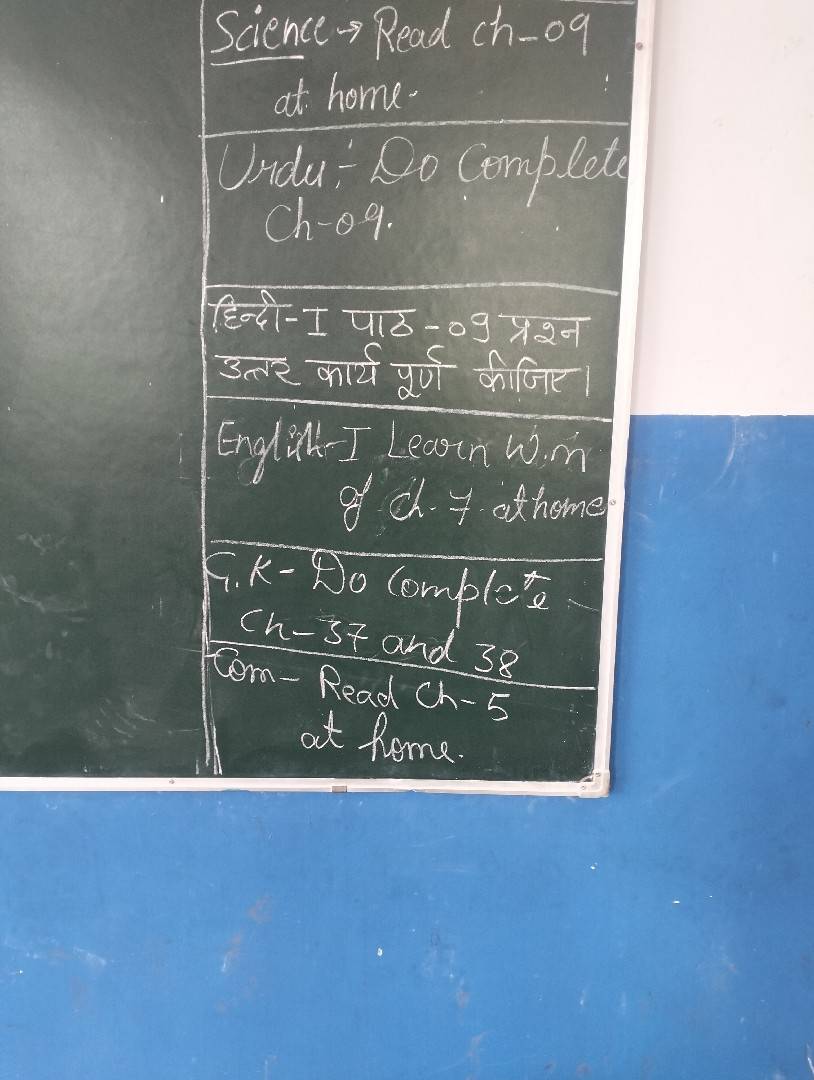 Science → Read ch-09
at home.
Urdu :- Do Complete
Ch-09.
हिन्दी-I पाठ -09 प्रश्न
उत्तर कार्य पूर्ण कीजिए।
English-I Learn W.m
of ch. 7. at home
G.K- Do Complete
Ch-37 and 38
Com- Read Ch-5
at home.